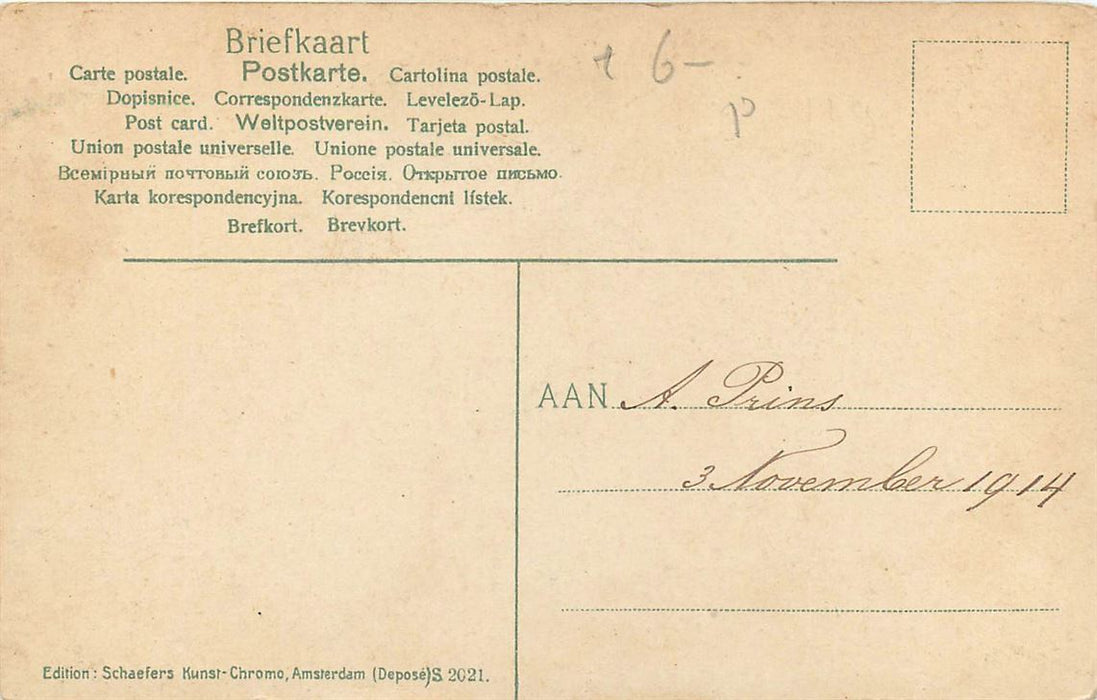 Briefkaart
Carte postale. Postkarte. Cartolina postale.
Dopisnice. Correspondenzkarte. Levelezõ-Lap.
Post card. Weltpostverein. Tarjeta postal.
Union postale universelle. Unione postale universale.
Всемірный почтовый союзъ. Россія. Открытое письмо.
Karta korespondencyjna. Korespondencni lístek.
Brefkort. Brevkort.
6-
AAN A. Prins
3 November 1914
Edition: Schaefers Kunst-Chromo, Amsterdam (Deposé) S. 2021.